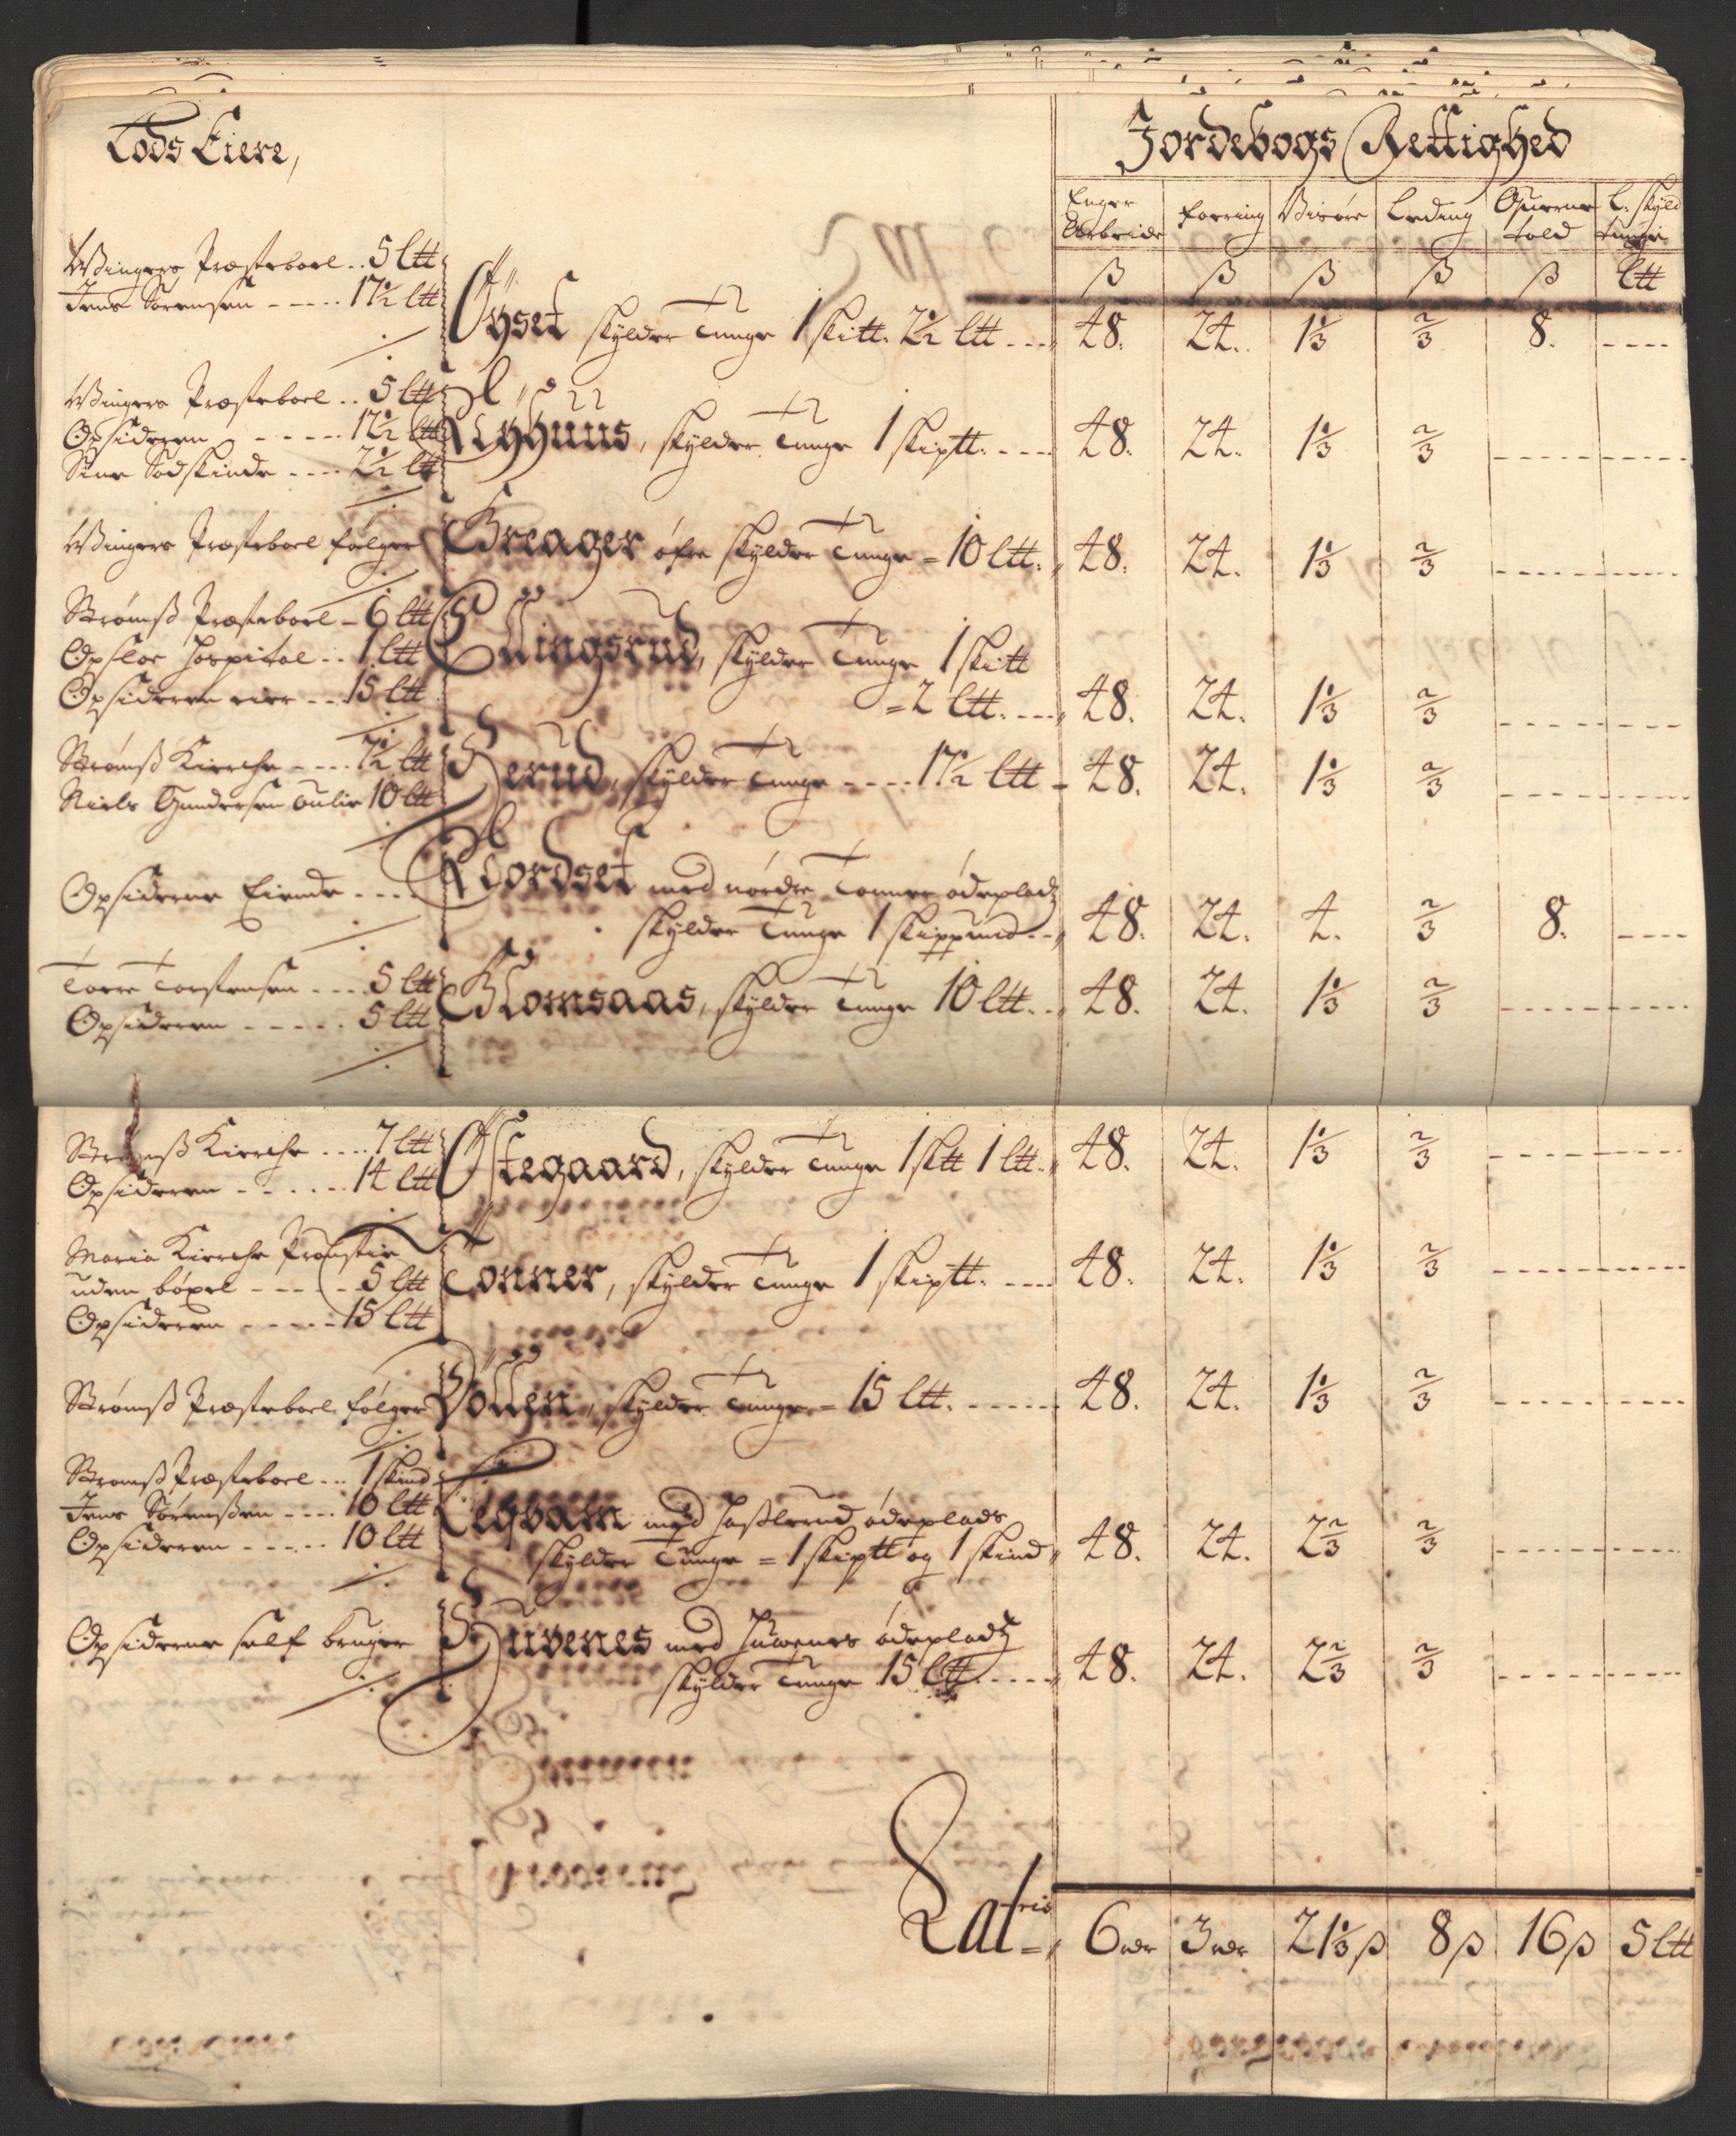 Lods Eiere,
Jordebogs Rettighed
Enger Arbeide | Foering | Visøre | Leding | Querne told | L. skyld tunge
β | β | β | β | β | Ltt
Wingers Præsteboel .. 5 Ltt
Jens Sørensen ----- 17½ Ltt
Øyset skylder Tunge 1 skitt. 2½ Ltt --- 48. 24. 1⅓ ⅔ 8. ----
Wingers Præsteboel .. 5 Ltt
Opsidderen ----- 12½ Ltt
Sine Sødskinde ---- 2½ Ltt
Nyhuus, skylder Tunge 1 skiptt. ---- 48. 24. 1⅓ ⅔ --------
Wingers Præsteboel følger
Greager øfre skylder Tunge = 10 Ltt. 48. 24. 1⅓ ⅔ --------
Strømsß Præsteboel - 6 Ltt
Opsloe Hospital .. 1 Ltt
Opsidderen eier --- 15 Ltt
Ellingsrud, skylder Tunge 1 skitt
= 2 Ltt. ---- 48. 24. 1⅓ ⅔ --------
Strømsß Kirche ---- 7½ Ltt
Niels Gundersen 10 Ltt
Serud, skylder Tunge ---- 17½ Ltt - 48. 24. 1⅓ ⅔ --------
Opsidderne Eiende ----
Nordset med nordre Tonner ødepladz
skylder Tunge 1 skippund -- 48. 24. 4. ⅔ 8. ----
Torre Torstensen --- 5 Ltt
Opsidderen ----- 5 Ltt
Glomsaas, skylder Tunge 10 Ltt. 48. 24. 1⅓ ⅔ --------
Kirche .... 7 Ltt
Opsidderen ------ 14 Ltt
Østegaard, skylder Tunge 1 sktt 1 Ltt. 48. 24. 1⅓ ⅔ --------
Maria Kirche Proustie
uden bøxel ----- 5 Ltt
Opsidderen ----- 15 Ltt
Tonner, skylder Tunge 1 skiptt. ---- 48. 24. 1⅓ ⅔ --------
Strømsß Præsteboel følger
skylder Tunge = 15 Ltt. ------ 48. 24. 1⅓ ⅔ --------
Strømsß Præsteboel ... 1 skind
Jens Sørensen ---- 10 Ltt
Opsidderen ----- 10 Ltt
med ødeplads
skylder Tunge = 1 skiptt og 1 skind 48. 24. 2⅔ ⅔ --------
Opsidderne self bruger
Huvenes med Huvenes ødepladz
skylder Tunge 15 Ltt ---- 48. 24. 2⅔ ⅔ --------
Lateris = 6 rdr 3 rdr 21⅓ β 8 β 16 β 5 Ltt